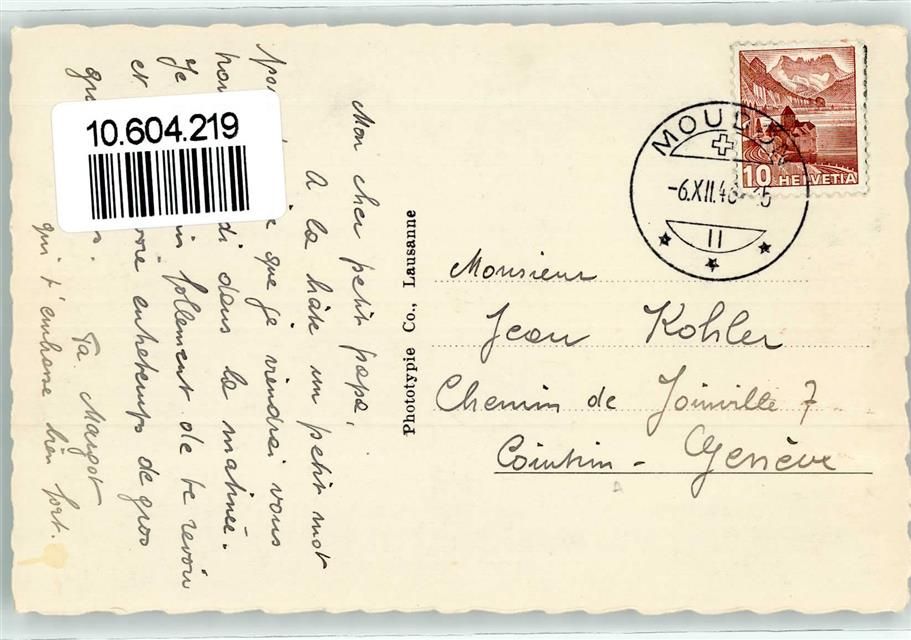 10.604.219
Mon cher petit papa,
A la hâte un petit mot
que je viendrai vous
dans la matinée.
Je follement de te revoir
et entretemps de gros
qui t'embrasse bien fort.
Ta Margot
Phototypie Co., Lausanne
MOUDON
-6.XII.46-
II
10 HELVETIA
Monsieur
Jean Kohler
Chemin de Joinville 7
Cointrin - Genève